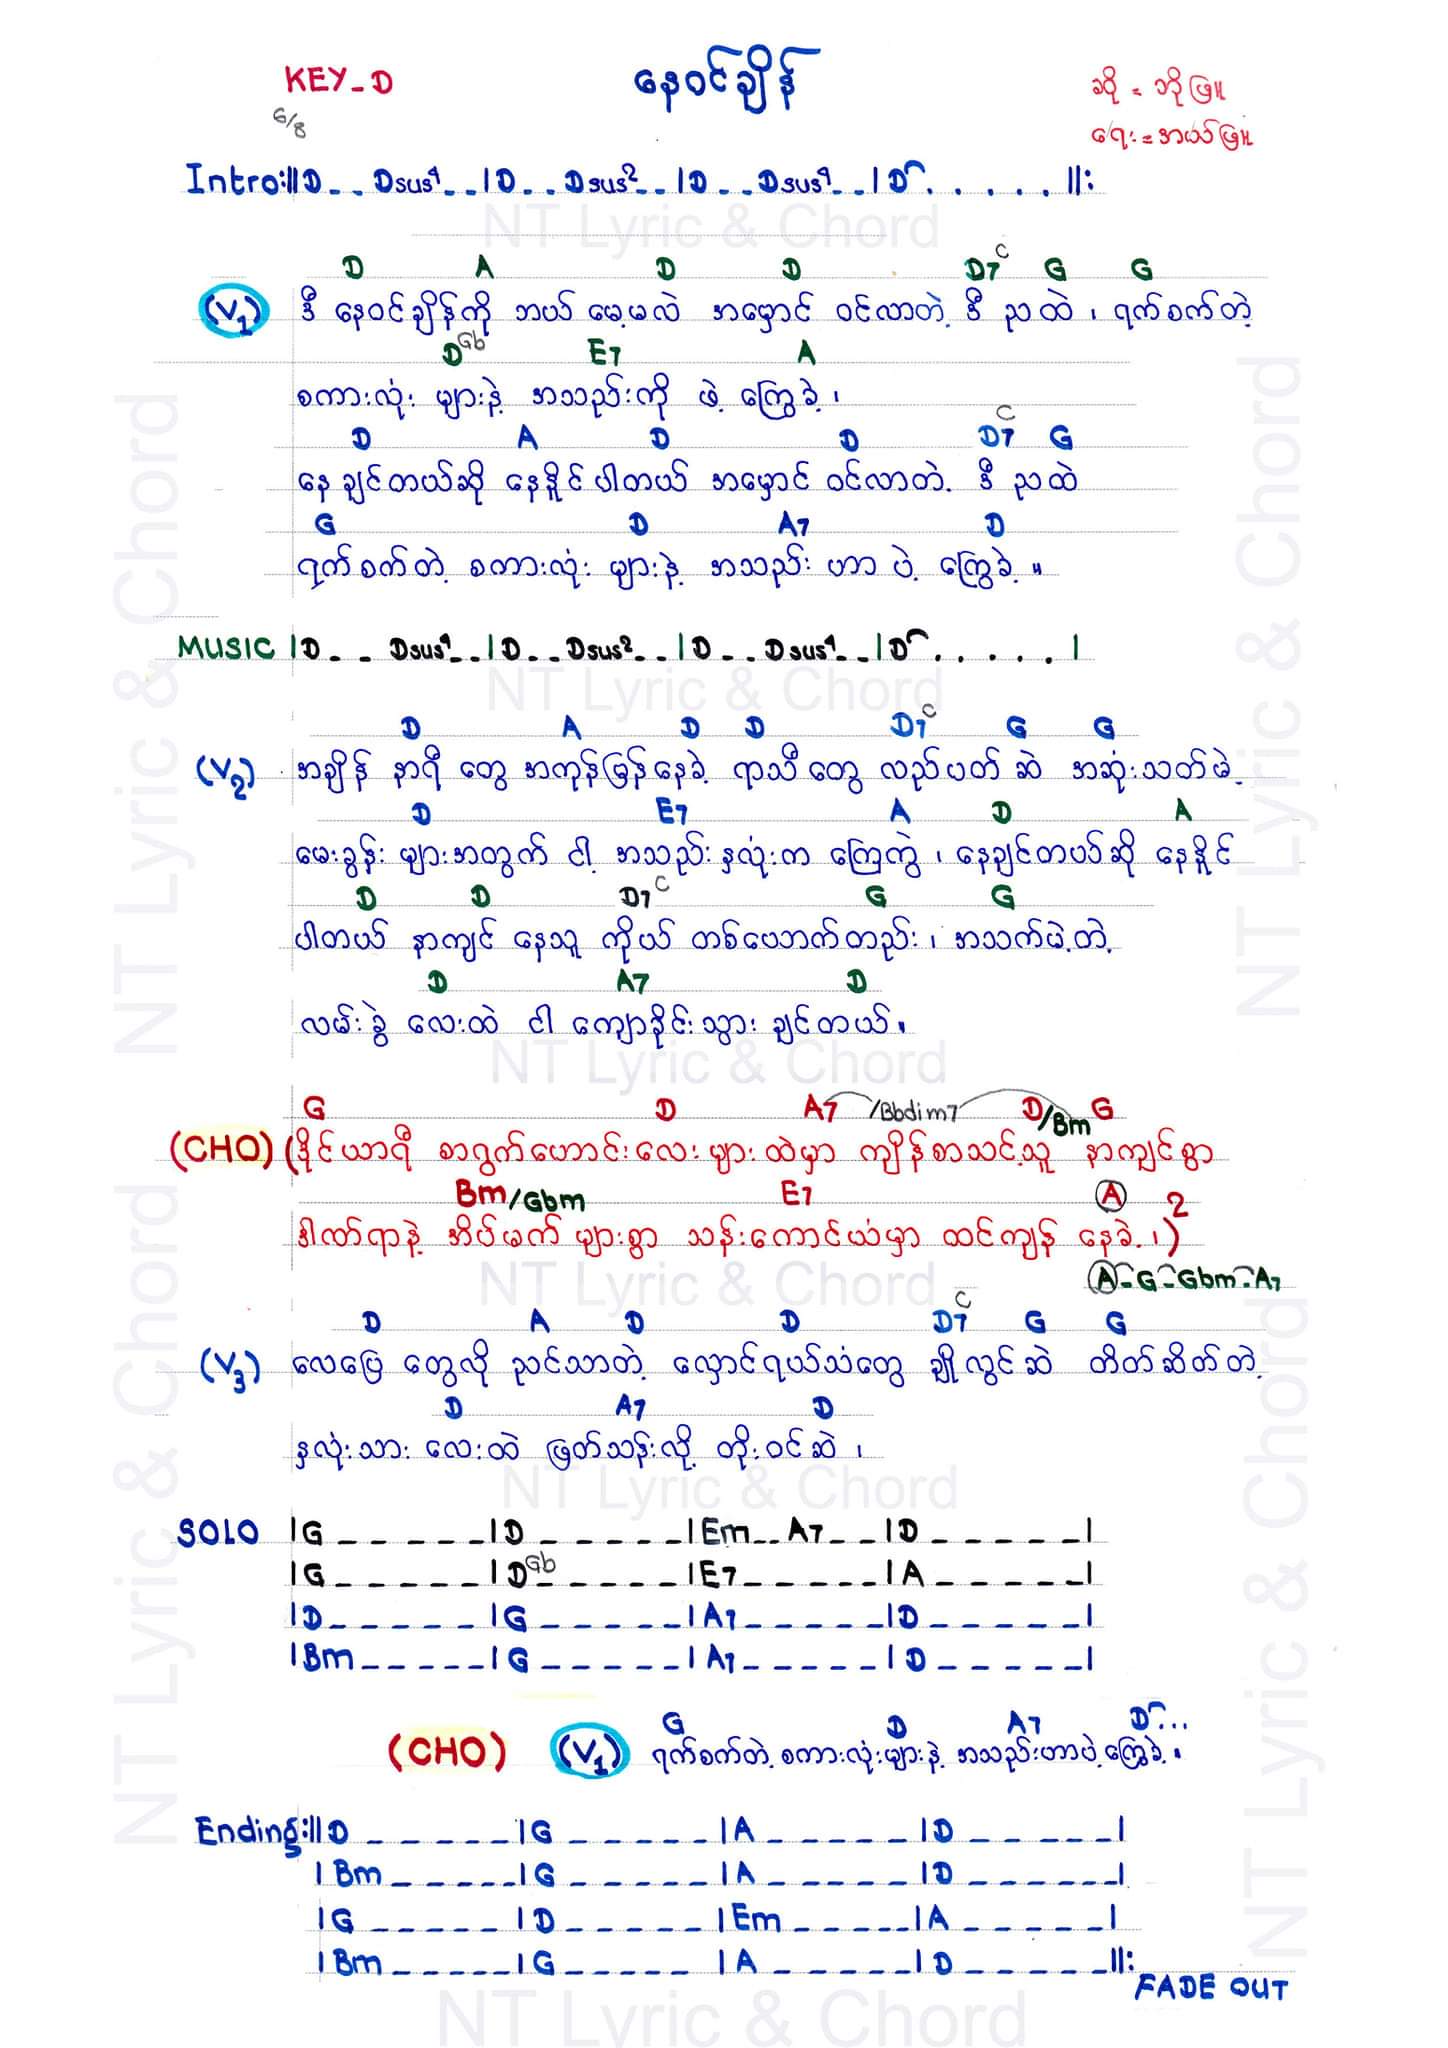 KEY_D
နေဝင်ချိန်
ဆို = ဘိုဖြူ
6/8
ရေး = အယ်ဖြူ
Intro:||D _ _ Dsus4 _ _ |D _ _ Dsus2 _ _ |D _ _ Dsus4 _ _ |D . . . . . ||:
NT Lyric & Chord
D A D D D7 C G G
(V1) ဒီ နေဝင်ချိန်ကို ဘယ် မေ့မလဲ အမှောင် ဝင်လာတဲ့ ဒီ ညထဲ ၊ ရက်စက်တဲ့
D Gb E7 A
စကားလုံး များနဲ့ အသည်းကို ဖဲ့ ကြွေခဲ့ ၊
D A D D D7 C G
နေ ချင်တယ်ဆို နေနိုင် ပါတယ် အမှောင် ဝင်လာတဲ့ ဒီ ညထဲ
G D A7 D
ရက်စက်တဲ့ စကားလုံး များနဲ့ အသည်း ဟာ ပဲ့ ကြွေခဲ့ ။
MUSIC |D _ _ Dsus4 _ _ |D _ _ Dsus2 _ _ |D _ _ Dsus4 _ _ |D . . . . . |
NT Lyric & Chord
D A D D D7 C G G
(V2) အချိန် နာရီ တွေ အကုန်မြန်နေခဲ့ ရာသီတွေ လည်ပတ် ဆဲ အဆုံးသတ်မဲ့
D E7 A D A
မေးခွန်း များအတွက် ငါ့ အသည်းနှလုံးက ကြေကွဲ ၊ နေချင်တယ်ဆို နေနိုင်
D D D7 C G G
ပါတယ် နာကျင် နေသူ ကိုယ် တစ်ယောက်တည်း ၊ အသက်မဲ့တဲ့
D A7 D
လမ်းခွဲ လေးထဲ ငါ ကျောခိုင်းသွား ချင်တယ် ။
NT Lyric & Chord
G D A7 /Bbdim7 D/Bm G
(CHO) (ဒိုင်ယာရီ စာရွက်ဟောင်းလေး များ ထဲမှာ ကျိန်စာသင့်သူ နာကျင်စွာ
Bm/Gbm E7 A 2
ဒါဏ်ရာနဲ့ အိပ်မက် များစွာ သန်းကောင်ယံမှာ ထင်ကျန် နေခဲ့ ၊)
A-G-Gbm-A7
NT Lyric & Chord
D A D D D7 C G G
(V3) လေပြေ တွေလို ညင်သာတဲ့ လှောင်ရယ်သံတွေ ချိုလွင်ဆဲ တိတ်ဆိတ်တဲ့
D A7 D
နှလုံးသား လေးထဲ ဖြတ်သန်းလို့ တိုးဝင်ဆဲ ၊
NT Lyric & Chord
SOLO |G _ _ _ _ _ |D _ _ _ _ _ |Em _ _ A7 _ _ |D _ _ _ _ _ |
|G _ _ _ _ _ |D Gb _ _ _ _ _ |E7 _ _ _ _ _ |A _ _ _ _ _ |
|D _ _ _ _ _ |G _ _ _ _ _ |A7 _ _ _ _ _ |D _ _ _ _ _ |
|Bm _ _ _ _ _ |G _ _ _ _ _ |A7 _ _ _ _ _ |D _ _ _ _ _ |
G D A7 D...
(CHO) (V1) ရက်စက်တဲ့ စကားလုံးများနဲ့ အသည်းဟာပဲ့ကြွေခဲ့ ။
Ending:||D _ _ _ _ _ |G _ _ _ _ _ |A _ _ _ _ _ |D _ _ _ _ _ |
|Bm _ _ _ _ _ |G _ _ _ _ _ |A _ _ _ _ _ |D _ _ _ _ _ |
|G _ _ _ _ _ |D _ _ _ _ _ |Em _ _ _ _ _ |A _ _ _ _ _ |
|Bm _ _ _ _ _ |G _ _ _ _ _ |A _ _ _ _ _ |D _ _ _ _ _ ||:
FADE OUT
NT Lyric & Chord
NT Lyric & Chord
NT Lyric & Chord
NT Lyric & Chord
NT Lyric & Chord